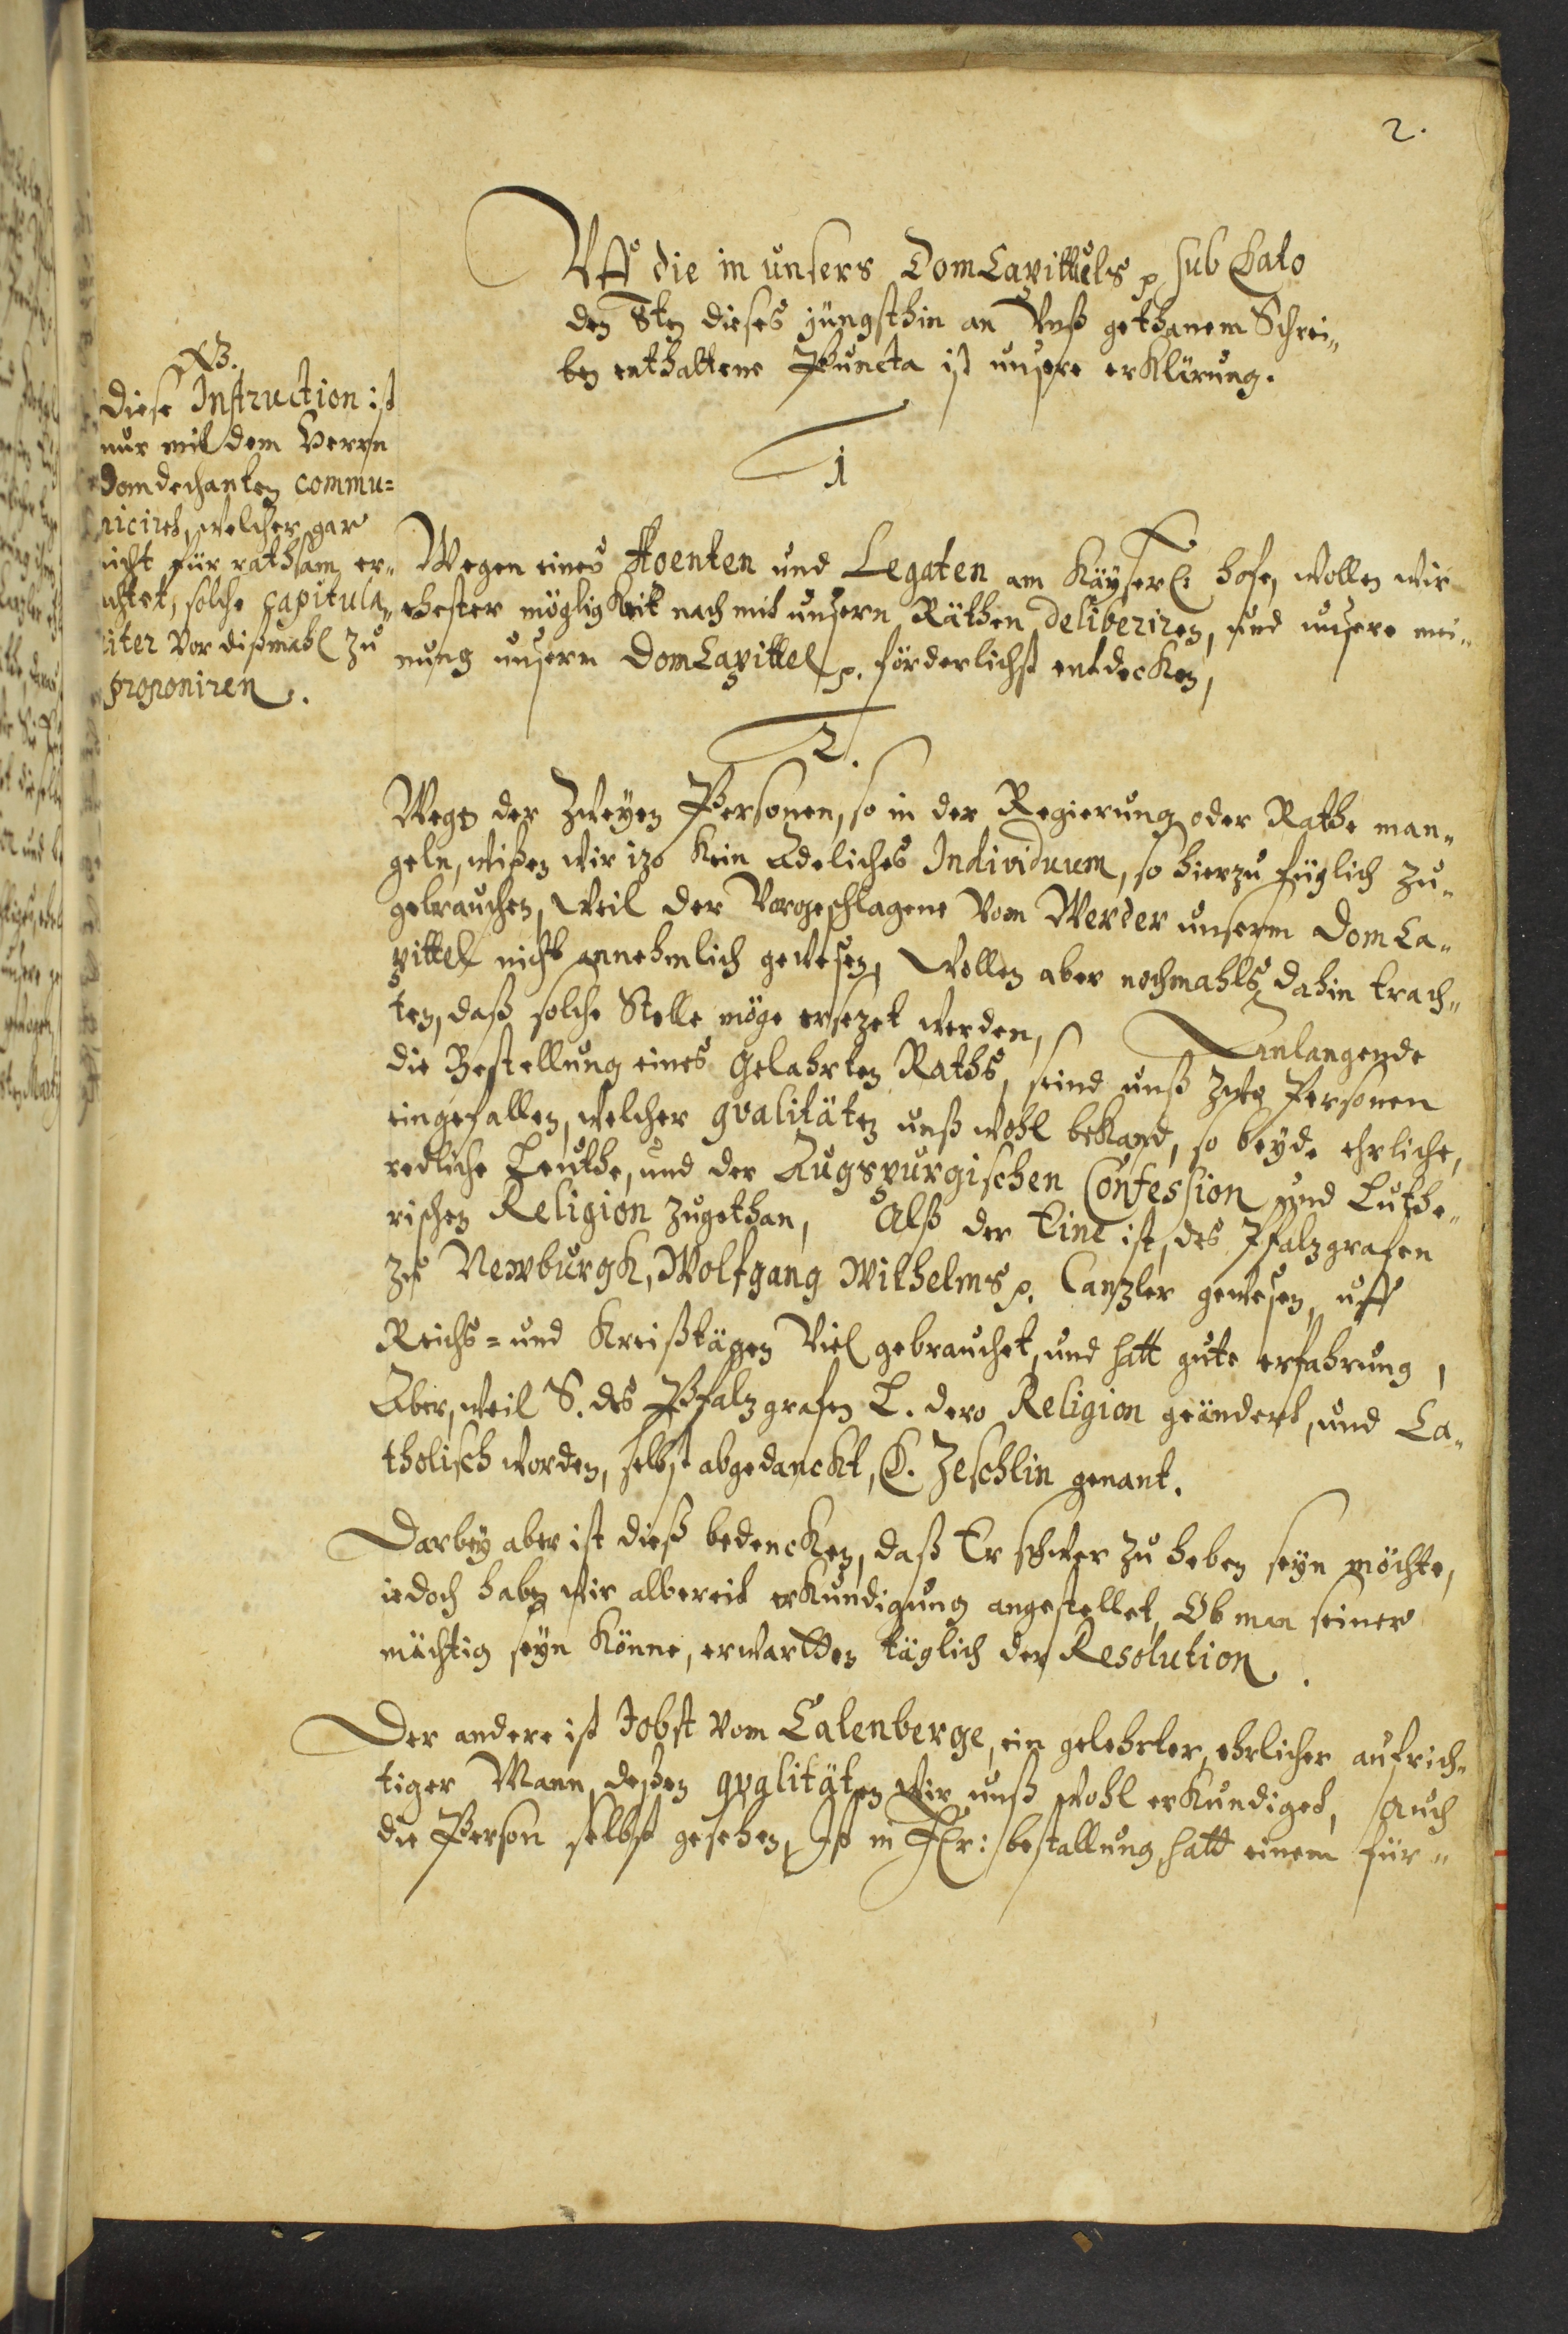 2.
Uff die in unsers DomCapittels p sub Dato
den 8ten dieses jüngsthin an Unß gethanem Schrei„
ben enthaltene Puncta ist unsere erklärung.
NB.
Diese Instruction ist
nur mit dem Herrn
Domdechanten commu=
nicirt, welcher gar
nicht für rathsam er„
achtet, solche capitula„
riter vor dißmahl zu
proponiren.
1
Wegen eines Agenten und Legaten am Käyserl: hofe, wollen wir
ehester mögligkeit nach mit unsern Räthen deliberiren, und unsere mei„
nung unserm DomCapittel p. förderlichst entdecken,
2.
Wegen der Zweyen Personen, so in der Regierung oder Rathe man„
geln, wißen wir izo kein Adeliches Individuum, so hierzu füglich zu„
gebrauchen, Weil der Vorgeschlagene vom Werder unserm DomCa„
pittel nicht annehmlich gewesen, Wollen aber nochmahls dahin trach„
ten, daß solche Stelle möge ersezet werden, Anlangende
die Bestellung eines Gelahrten Raths, seind unß zwo Personen
eingefallen, welcher qvalitäten unß wohl bekand, so beyde ehrliche,
redliche Leuthe, und der Augspurgischen Confession und Luthe„
rischen Religion zugethan, Alß der Eine ist, des Pfalzgrafen
zu Newburgk, Wolfgang Wilhelms p. Canzler gewesen, uff
Reichs= und Kreißtägen Viel gebrauchet, und hatt gute erfahrung,
Aber, weil S. des Pfalzgrafen L. dero Religion geändert, und Ca„
tholisch worden, selbst abgedanckt, D. Zeschlin genant.
Darbey aber ist dieß bedencken, daß Er schwer zu heben seyn möchte,
iedoch haben wir albereit erkundigung angestellet, Ob man seiner
mächtig seyn könne, erwartten täglich der Resolution.
Der andere ist Jobst vom Calenberge, ein gelehrter, ehrlicher aufrich„
tiger Mann, deßen qvalitäten Wir unß wohl erkundiget, Auch
die Person selbst gesehen, Ist in bestallung, hatt einem für„